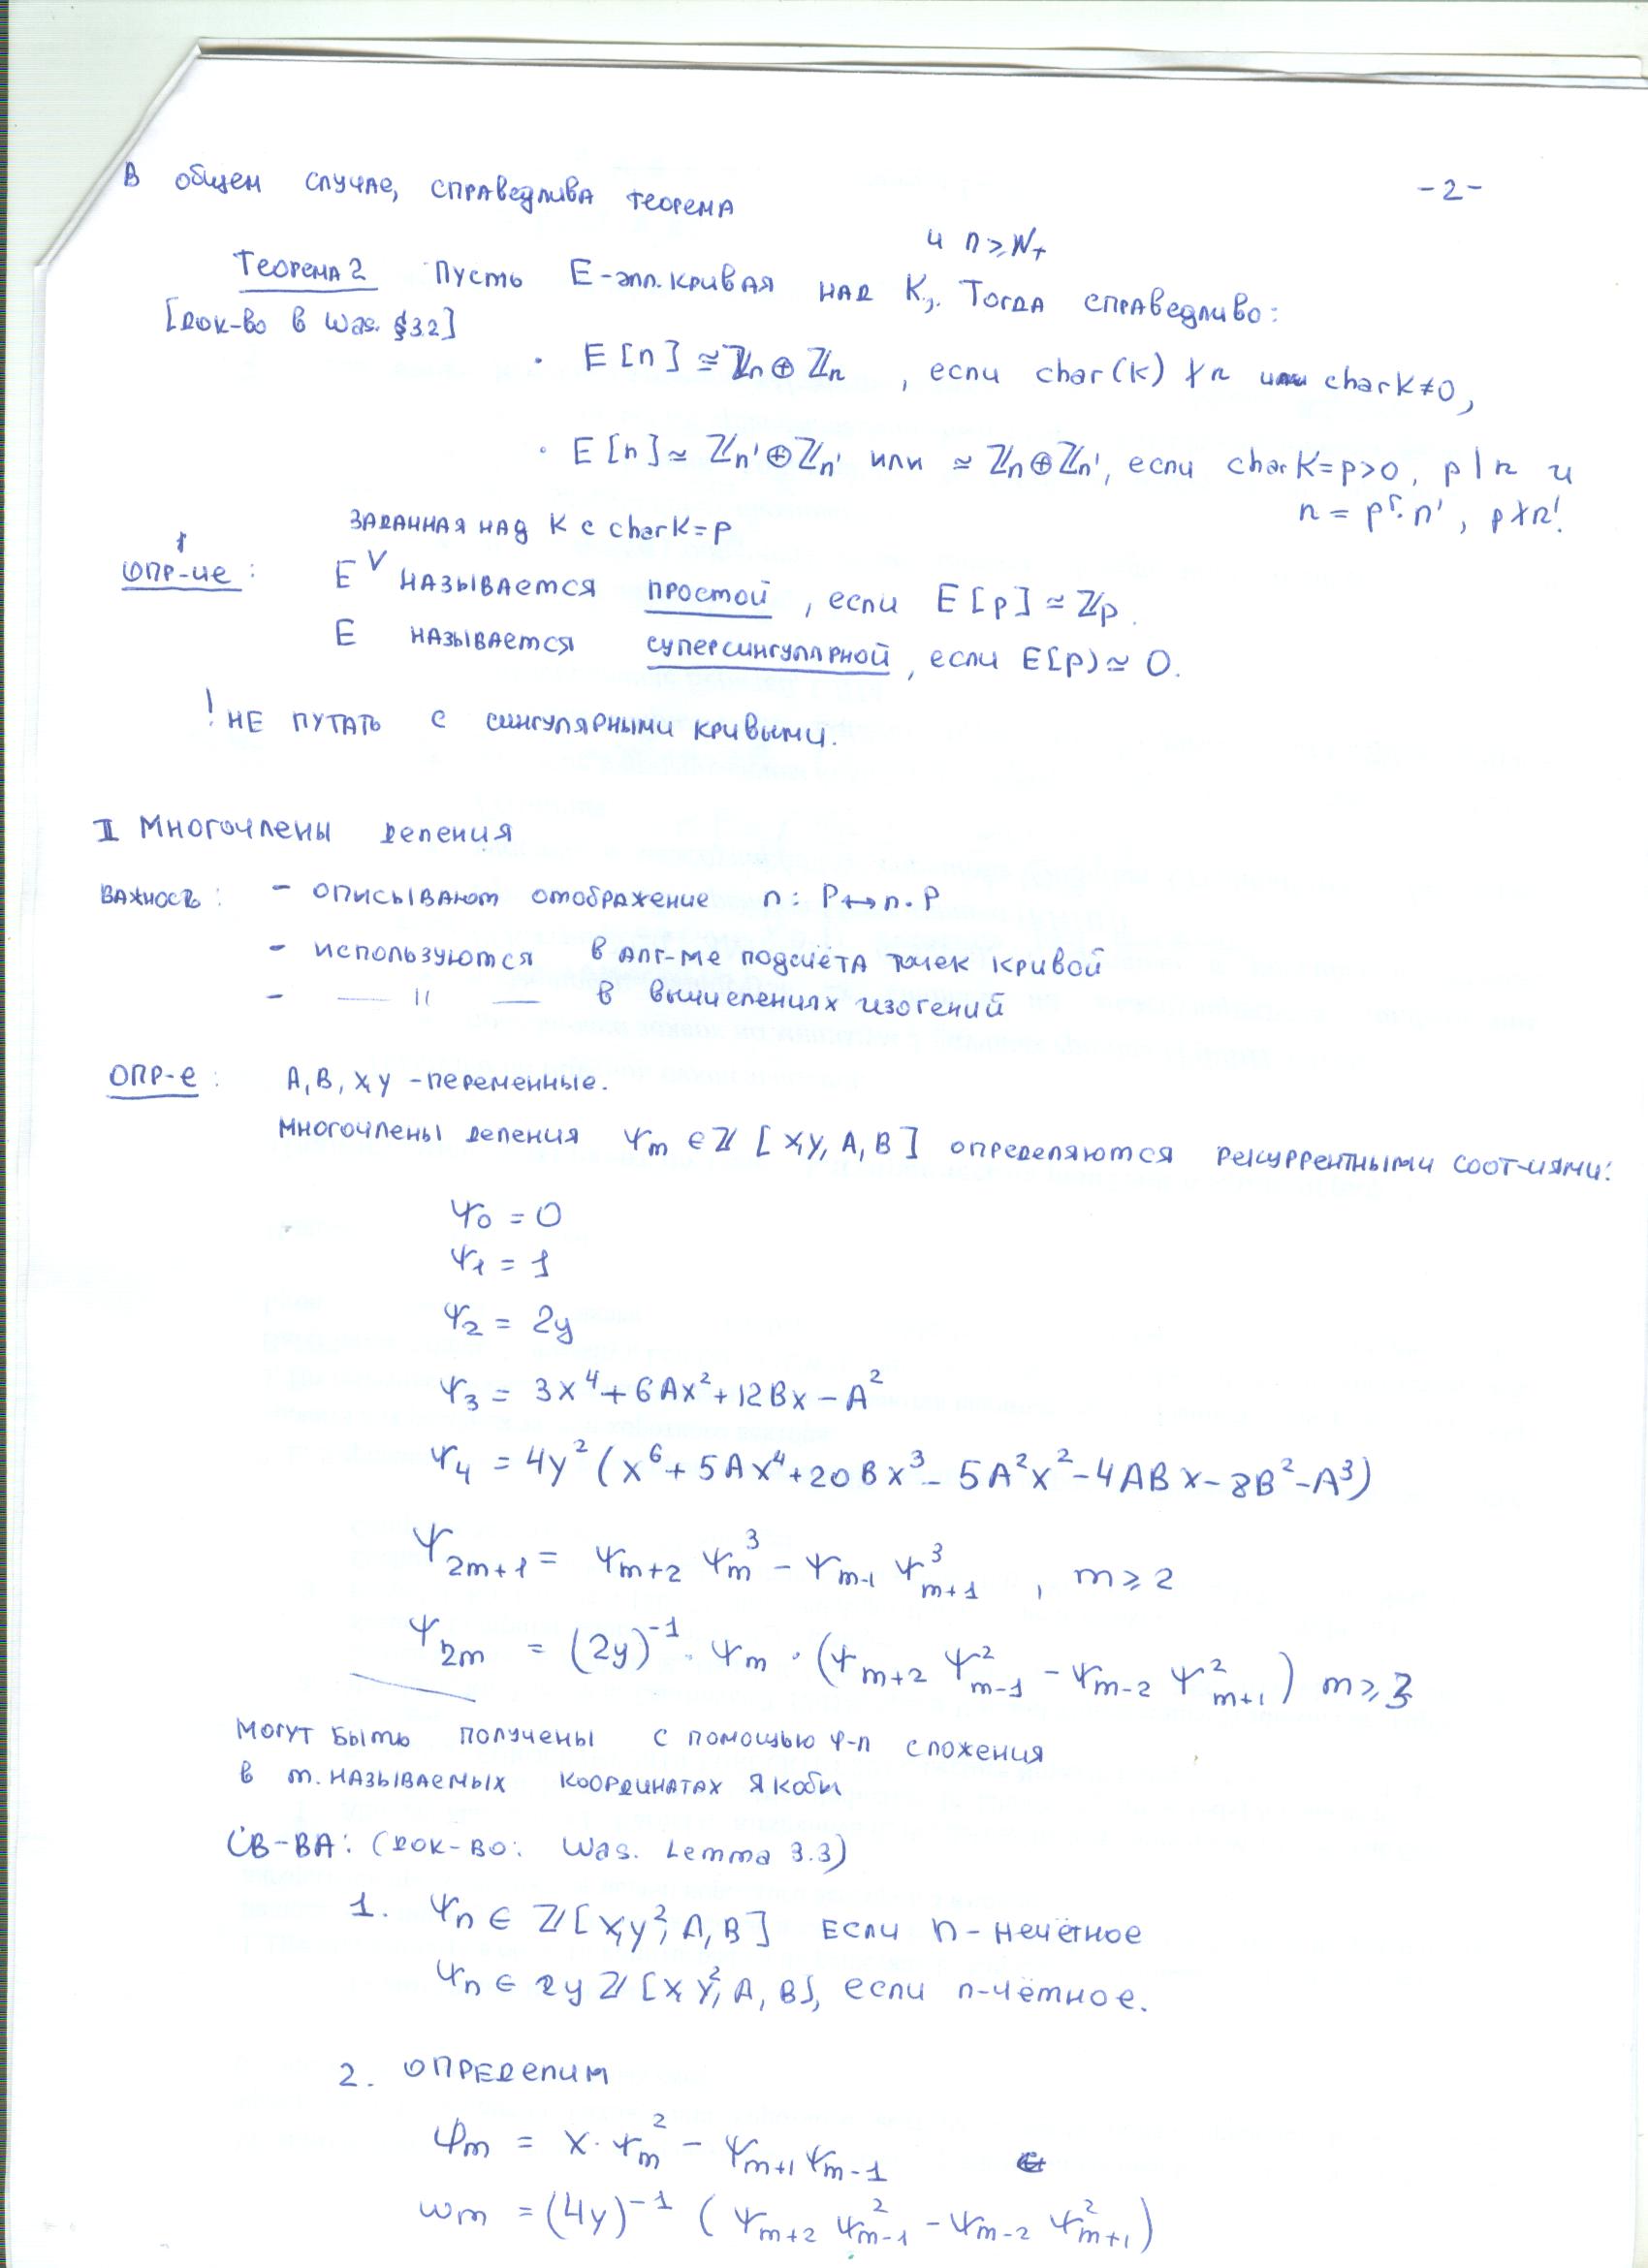 -2-
В общем случае, справедлива теорема
и n ≥ N+
Теорема 2 Пусть E-элл. кривая над K,. Тогда справедливо:
[док-во в Was. §3.2]
• E[n] ≅ ℤn ⊕ ℤn , если char(k) ∤ n или char K ≠ 0,
• E[n] ≃ ℤn' ⊕ ℤn' или ≃ ℤn ⊕ ℤn', если char K = p > 0, p | n и
n = p^r · n', p ∤ n'.
заданная над K с char K = p
Опр-ие: E называется простой, если E[p] ≃ ℤp.
E называется суперсингулярной, если E[p) ≃ 0.
! Не путать с сингулярными кривыми.
II Многочлены деления
Важность: - описывают отображение n: P ↦ n·P
- используются в алг-ме подсчёта точек кривой
- — 11 — в вычислениях изогений
Опр-е: A, B, x, y - переменные.
Многочлены деления ψm ∈ ℤ [x, y, A, B] определяются рекуррентными соот-иями:
ψ0 = 0
ψ1 = 1
ψ2 = 2y
ψ3 = 3x^4 + 6Ax^2 + 12Bx - A^2
ψ4 = 4y^2 (x^6 + 5Ax^4 + 20Bx^3 - 5A^2x^2 - 4ABx - 8B^2 - A^3)
ψ2m+1 = ψm+2 ψm^3 - ψm-1 ψm+1^3 , m ≥ 2
ψ2m = (2y)^-1 · ψm · (ψm+2 ψm-1^2 - ψm-2 ψm+1^2) m ≥ 3
Могут быть получены с помощью ф-л сложения
в т. называемых координатах Якоби
Св-ва: (док-во: Was. Lemma 3.3)
1. ψn ∈ ℤ[x, y^2, A, B] если n - нечётное
ψn ∈ 2y ℤ [x, y^2, A, B], если n-чётное.
2. Определим
φm = x · ψm^2 - ψm+1 ψm-1
ωm = (4y)^-1 (ψm+2 ψm-1^2 - ψm-2 ψm+1^2)